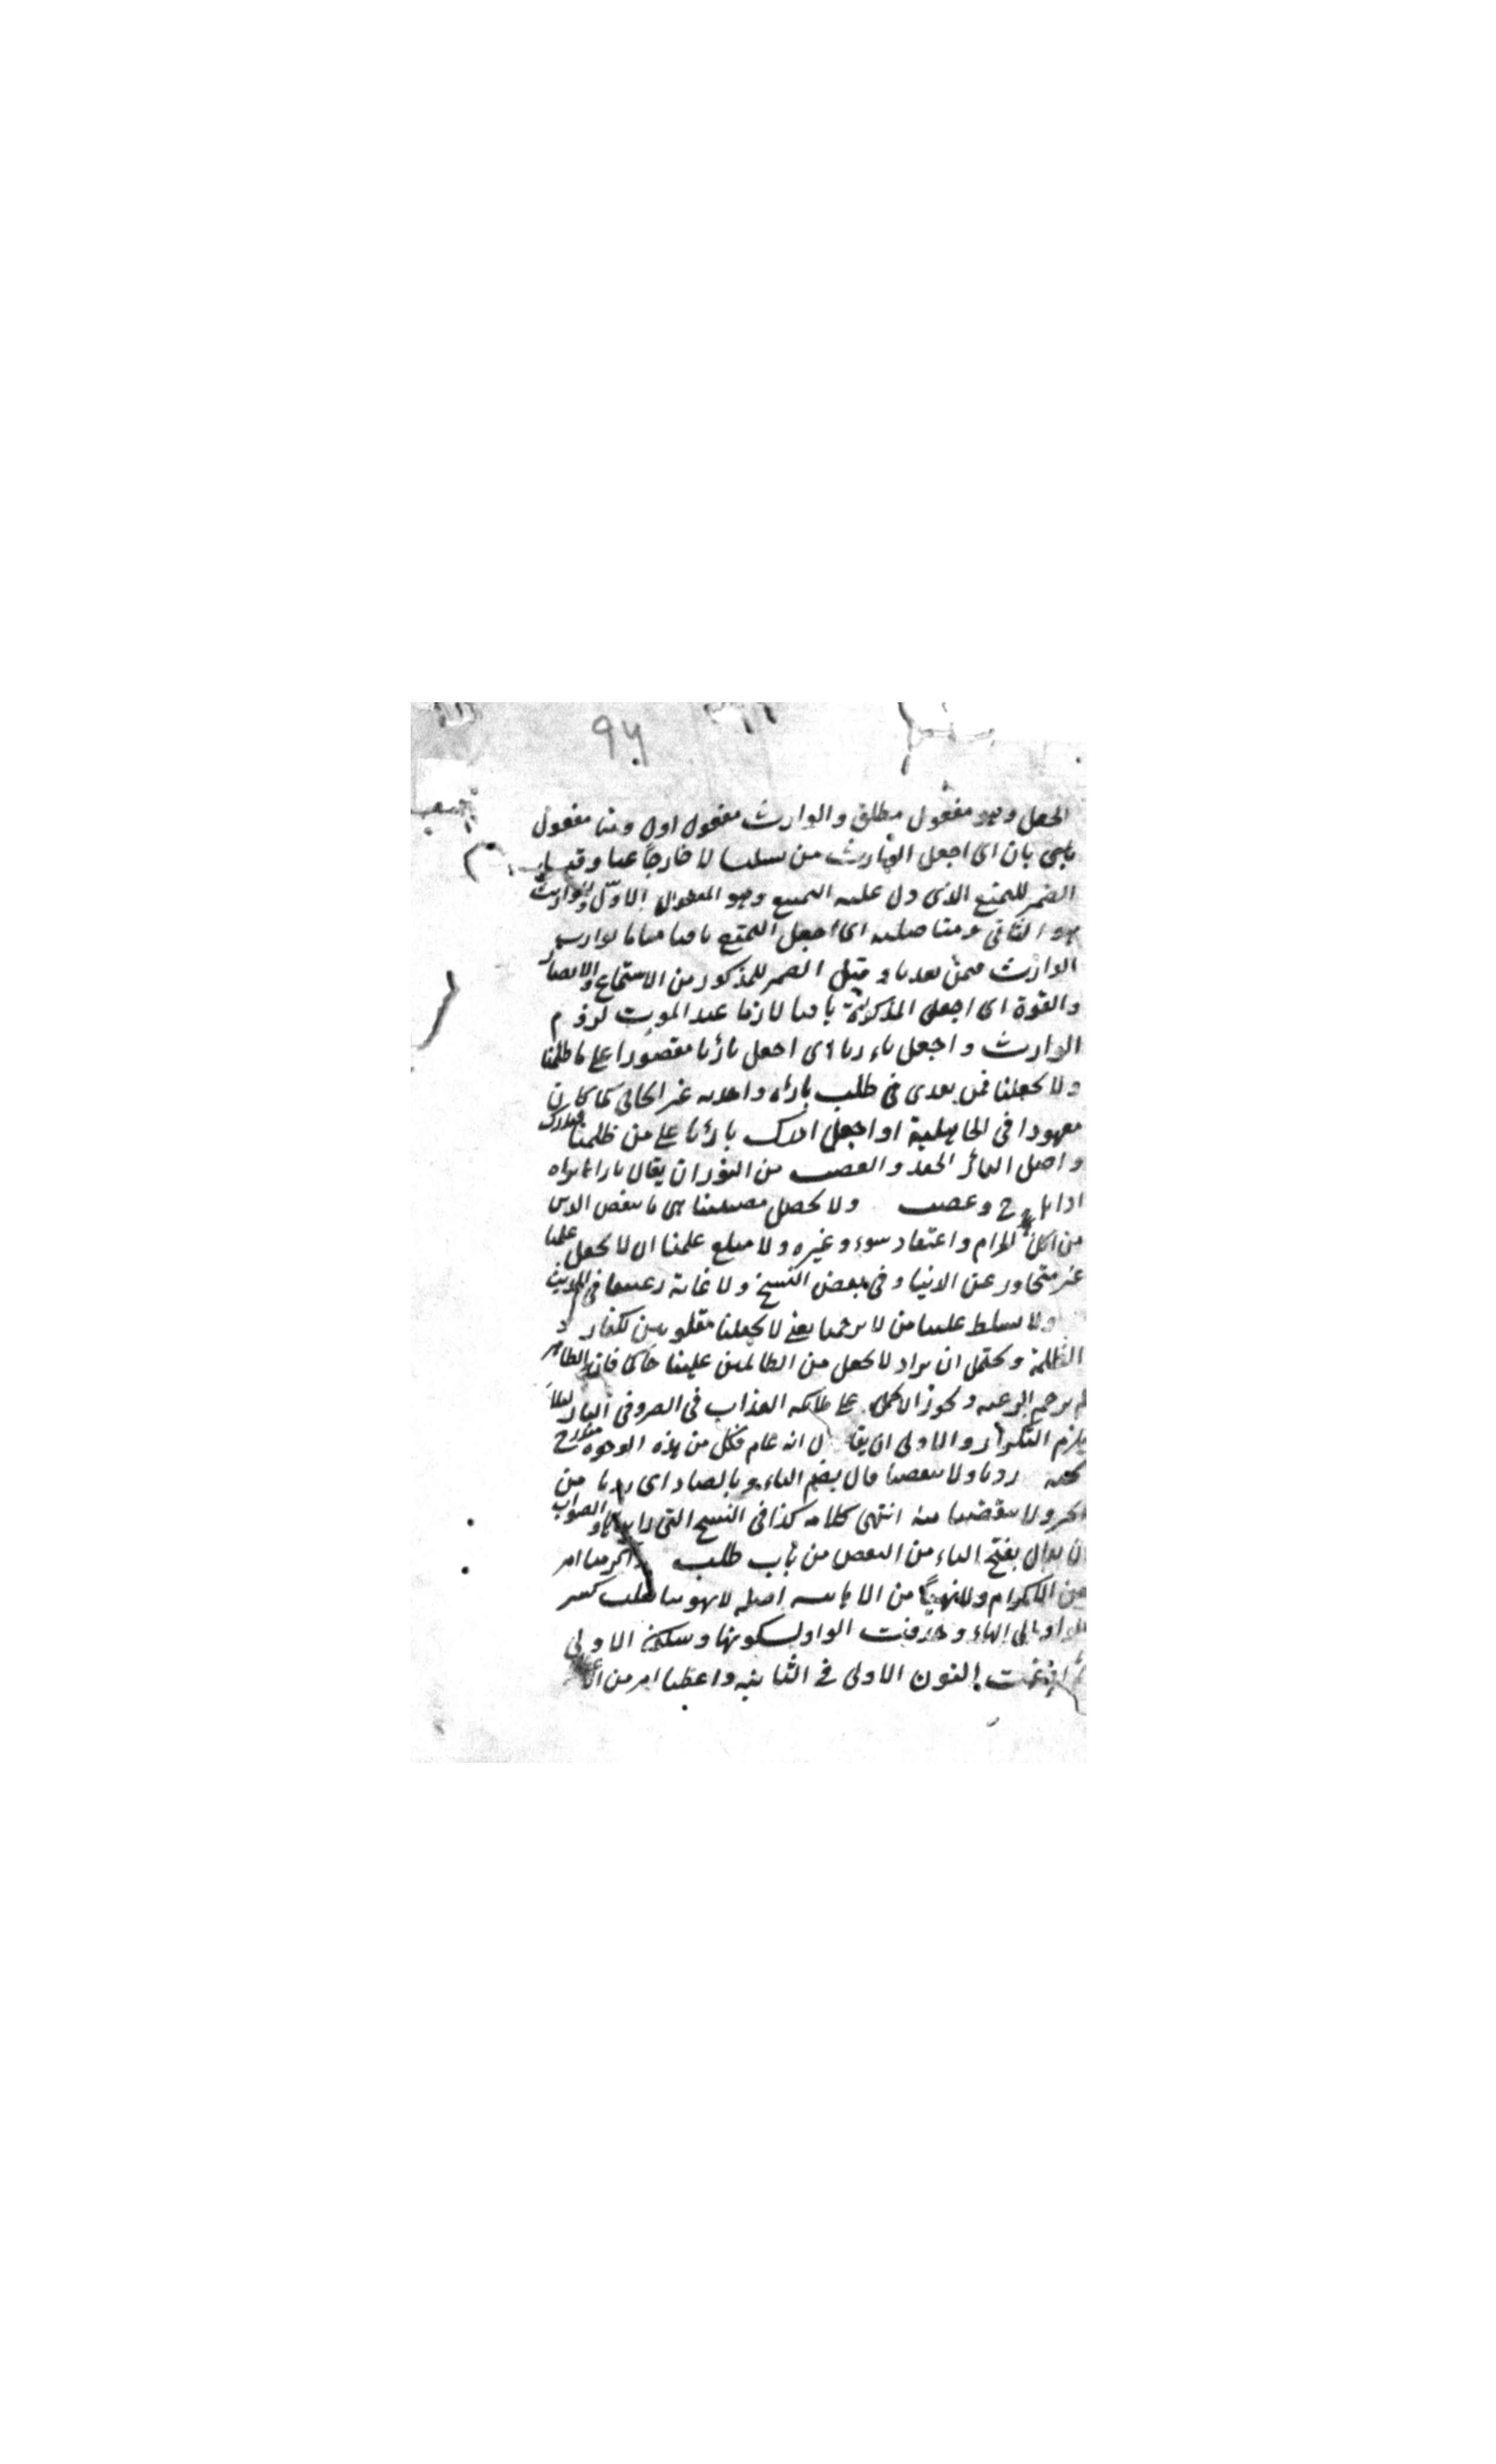 ٩٤
الجعل وهو مفعول مطلق والوارث مفعول اول ومنا مفعول
ثان اى اجعل الوارث من نسلنا لا خارجا عنا وقيل
الضمير للتمتع الذى دل عليه التمتيع وهو المفعول الاول والوارث
هو الثانى ومنا صلته اى اجعل التمتع باقيا منا
الوارث فيمن بعدنا وقيل الضمير للمذكور من الاستماع والابصار
والقوة اى اجعل المذكور باقيا لازما عند الموت لزوم
الوارث واجعل ثارنا اى اجعل ثارنا مقصورا على من ظلمنا
ولا تجعلنا ممن تعدى فى طلب ثاره واخذ به غير الجانى كما كان
معهودا فى الجاهلية او اجعل ادراك ثارنا على من ظلمنا
واصل الثار الحقد والغضب من الثوران يقال ثار
اذا هاج وغضب ولا تجعل مصيبتنا هى ما ينقص الدين
من اكل الحرام واعتقاد سوء وغيره ولا مبلغ علمنا ان لا تجعل علمنا
غير متجاوز عن الدنيا وفى بعض النسخ ولا غاية رغبتنا فى
ولا تسلط علينا من لا يرحمنا يعنى لا تجعلنا مغلوبين للكفار و
الظلمة ويحتمل ان يراد لا تجعل من الظالمين علينا حاكما فان الظالم
لم يرحم الرعية ويجوز الحمل على ملائكة العذاب فى القبر وفى النار لئلا
يلزم التكرار والاولى ان يقال انه عام فكل من هذه الوجوه مندرج
تحته زدنا ولا تنقصنا قال بضم التاء وبالصاد اى زدنا من
الخير ولا تنقصنا منه انتهى كلامه كذا فى النسخ التى رايناها والصواب
ان يقال بفتح التاء من النقص من باب طلب واكرمنا امر
من الاكرام ولا تهنا من الاهانة اصله لا تهوننا نقلت كسر
الواو الى الهاء وحذفت الواو لسكونها وسكون الاولى
ثم ادغمت النون الاولى فى الثانية واعطنا امر من